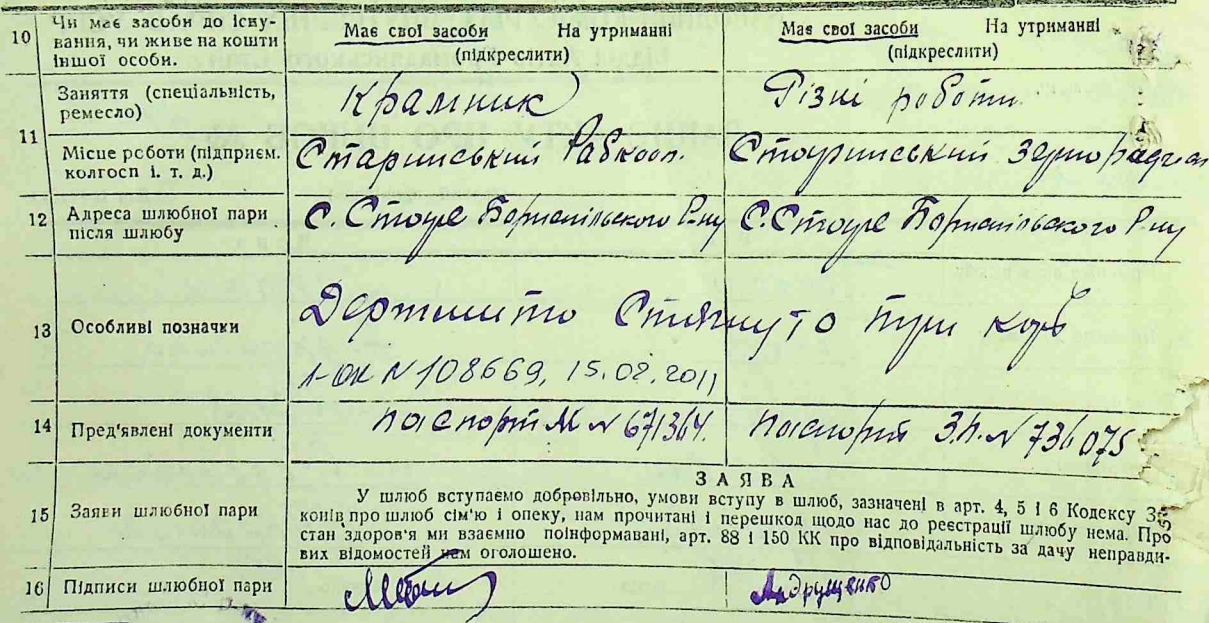 10 Чи має засоби до існу-
вання, чи живе на кошти
іншої особи.
Має свої засоби На утриманні
(підкреслити)
Має свої засоби На утриманні
(підкреслити)
11
Заняття (спеціальність,
ремесло)
Крамник
Різні роботи
Місце роботи (підприєм.
колгосп і. т. д.)
Старинський
Старинський
12 Адреса шлюбної пари
після шлюбу
С. Старе Бориспільського Р-ну
С. Старе Бориспільського Р-ну
13 Особливі позначки
Держмито Стягнуто
N 108669, 15.02.2011
14 Пред'явлені документи
паспорт N 671364.
паспорт N 736075
15 Заяви шлюбної пари
ЗАЯВА
У шлюб вступаємо добровільно, умови вступу в шлюб, зазначені в арт. 4, 5 і 6 Кодексу За-
конів про шлюб сім'ю і опеку, нам прочитані і перешкод щодо нас до реєстрації шлюбу нема. Про
стан здоров'я ми взаємно поінформавані, арт. 88 і 150 КК про відповідальність за дачу неправди-
вих відомостей нам оголошено.
16 Підписи шлюбної пари
Андрущенко